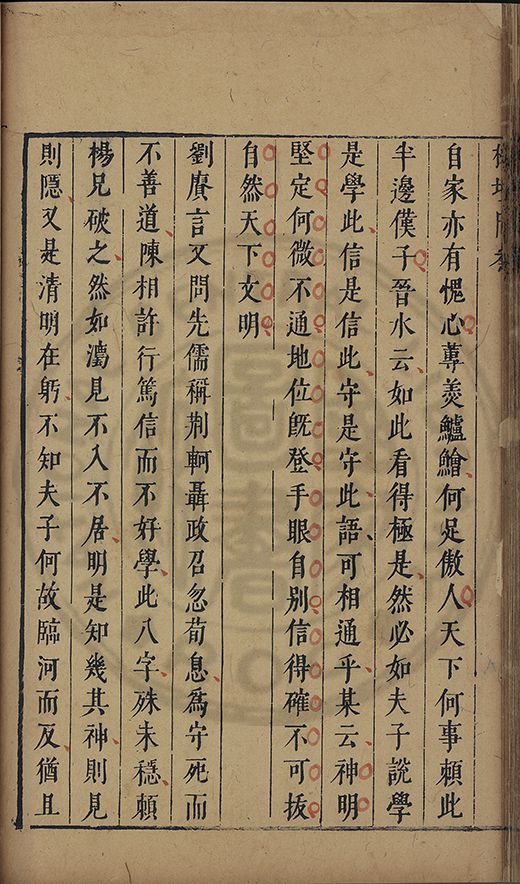 自家亦有愧心蓴羹鱸鱠何足傲人天下何事賴此
半邊僕子晉水云如此看得極是然必如夫子說學
是學此信是信此守是守此語可相通乎某云神明
堅定何微不通地位既登手眼自別信得確不可拔
自然天下文明
劉賡言又問先儒稱荆軻聶政召忽荀息為守死而
不善道陳相許行篤信而不好學此八字殊未穩賴
楊兄破之然如濁見不入不居明是知幾其神則見
則隱又是清明在躬不知夫子何故臨河而反猶且